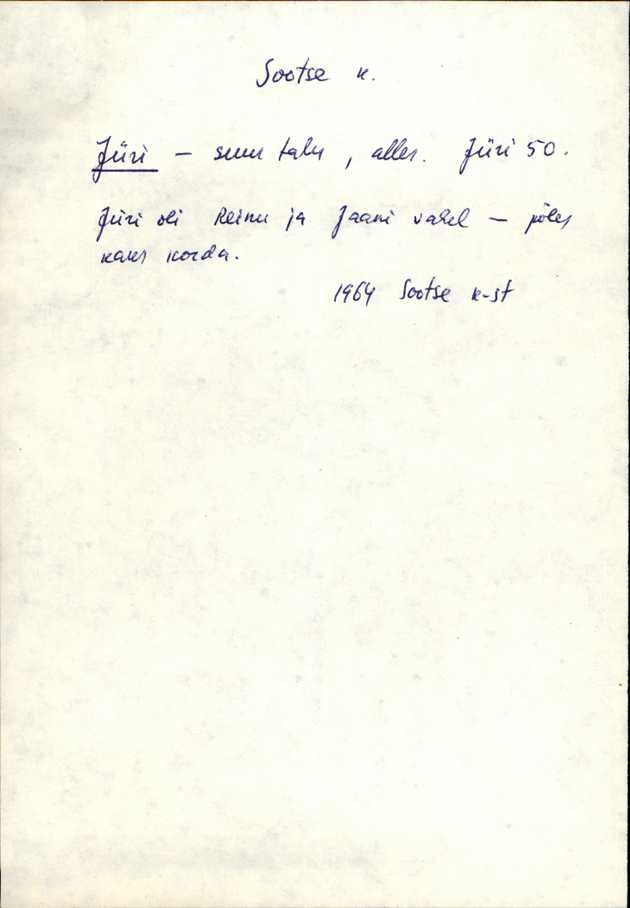 Sootse k.
Jüri — suur talu, alles. Jüri 50.
Jüri oli Reinu ja Jaani vahel — põles
kaks korda.
1964 Sootse k-st